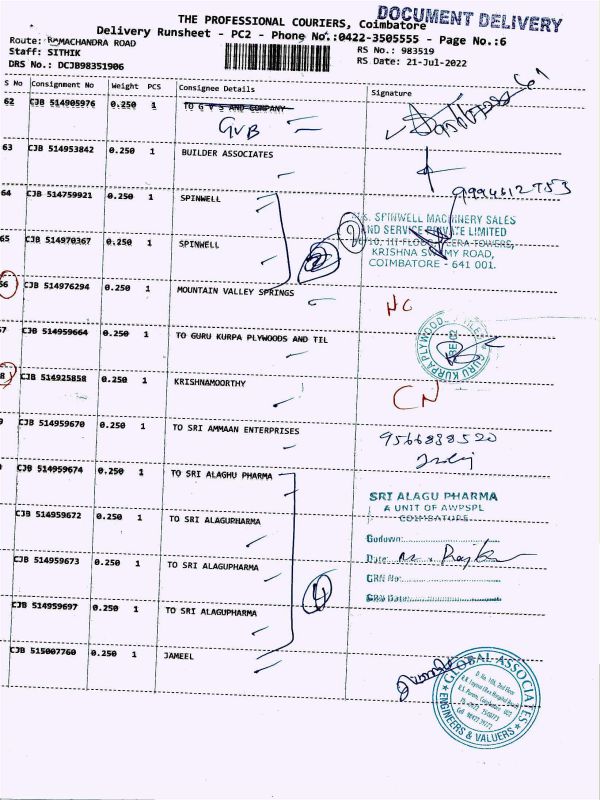 DOCUMENT DELIVERY
THE PROFESSIONAL COURIERS, Coimbatore
Delivery Runsheet - PC2 - Phone No.:0422-3505555 - Page No.:6
Route: RAMACHANDRA ROAD
Staff: SITHIK
DRS No.: DCJB98351906
RS No.: 983519
RS Date: 21-Jul-2022
S No Consignment No Weight PCS Consignee Details Signature
62 CJB 514905976 0.250 1 TO G V S AND COMPANY
GVB
63 CJB 514953842 0.250 1 BUILDER ASSOCIATES
9994612753
64 CJB 514759921 0.250 1 SPINWELL
M/S. SPINWELL MACHINERY SALES
AND SERVICE PRIVATE LIMITED
KRISHNA SWAMY ROAD,
COIMBATORE - 641 001.
65 CJB 514970367 0.250 1 SPINWELL
2
66 CJB 514976294 0.250 1 MOUNTAIN VALLEY SPRINGS
NC
67 CJB 514959664 0.250 1 TO GURU KURPA PLYWOODS AND TIL
GURU KURPA PLYWOOD
8 CJB 514925858 0.250 1 KRISHNAMOORTHY
CN
9 CJB 514959670 0.250 1 TO SRI AMMAAN ENTERPRISES
9566838520
CJB 514959674 0.250 1 TO SRI ALAGHU PHARMA
SRI ALAGU PHARMA
A UNIT OF AWPSPL
COIMBATORE
CJB 514959672 0.250 1 TO SRI ALAGUPHARMA
Godown:
Date:
CJB 514959673 0.250 1 TO SRI ALAGUPHARMA
GRN No:
GRN Date:
CJB 514959697 0.250 1 TO SRI ALAGUPHARMA
4
CJB 515007760 0.250 1 JAMEEL
GLOBAL ASSOCIATES
ENGINEERS & VALUERS